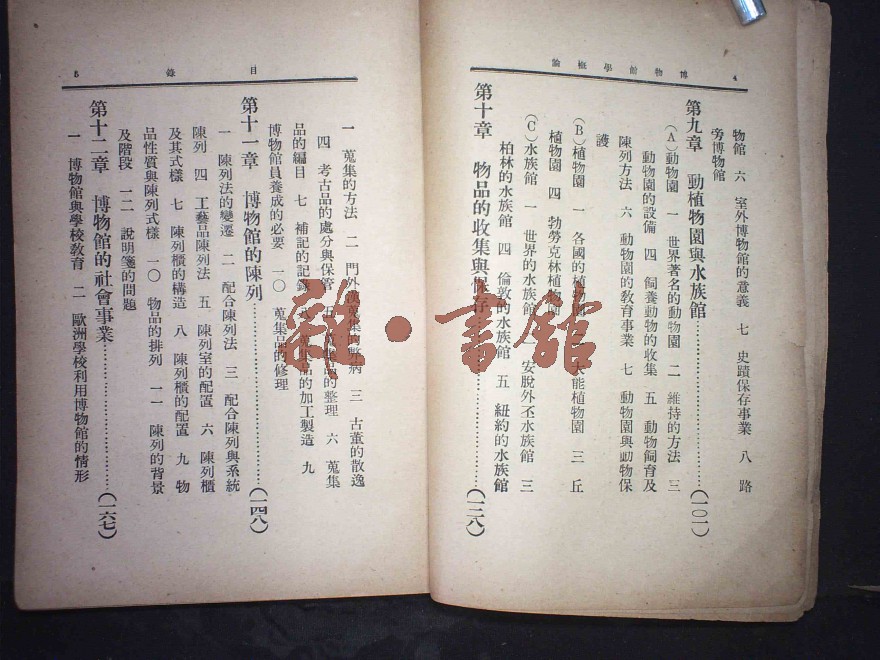 博物館學概論 4
物館 六 室外博物館的意義 七 史蹟保存事業 八 路
旁博物館
第九章 動植物園與水族館……(一〇一)
(A)動物園 一 世界著名的動物園 二 維持的方法 三
動物園的設備 四 飼養動物的收集 五 動物飼育及
陳列方法 六 動物園的敎育事業 七 動物園與動物保
護
(B)植物園 一 各國的植物園 大能植物園 三 丘
植物園 四 勃勞克林植物
(C)水族館 一 世界的水族館 安脫外丕水族館 三
柏林的水族館 四 倫敦的水族館 五 紐約的水族館
第十章 物品的收集與保存……(一二八)
目錄 5
一 蒐集的方法 二 門外漢蒐集的弊病 三 古董的散逸
四 考古品的處分與保管 品的整理 六 蒐集
品的編目 七 補記的記錄 蒐集品的加工製造 九
博物館員養成的必要 一〇 蒐集品的修理
第十一章 博物館的陳列……(一四八)
一 陳列法的變遷 二 配合陳列法 三 配合陳列與系統
陳列 四 工藝品陳列法 五 陳列室的配置 六 陳列櫃
及其式樣 七 陳列櫃的構造 八 陳列櫃的配置 九 物
品性質與陳列式樣 一〇 物品的排列 一一 陳列的背景
及階段 一二 說明箋的問題
第十二章 博物館的社會事業……(一六七)
一 博物館與學校敎育 二 歐洲學校利用博物館的情形
雜·書館